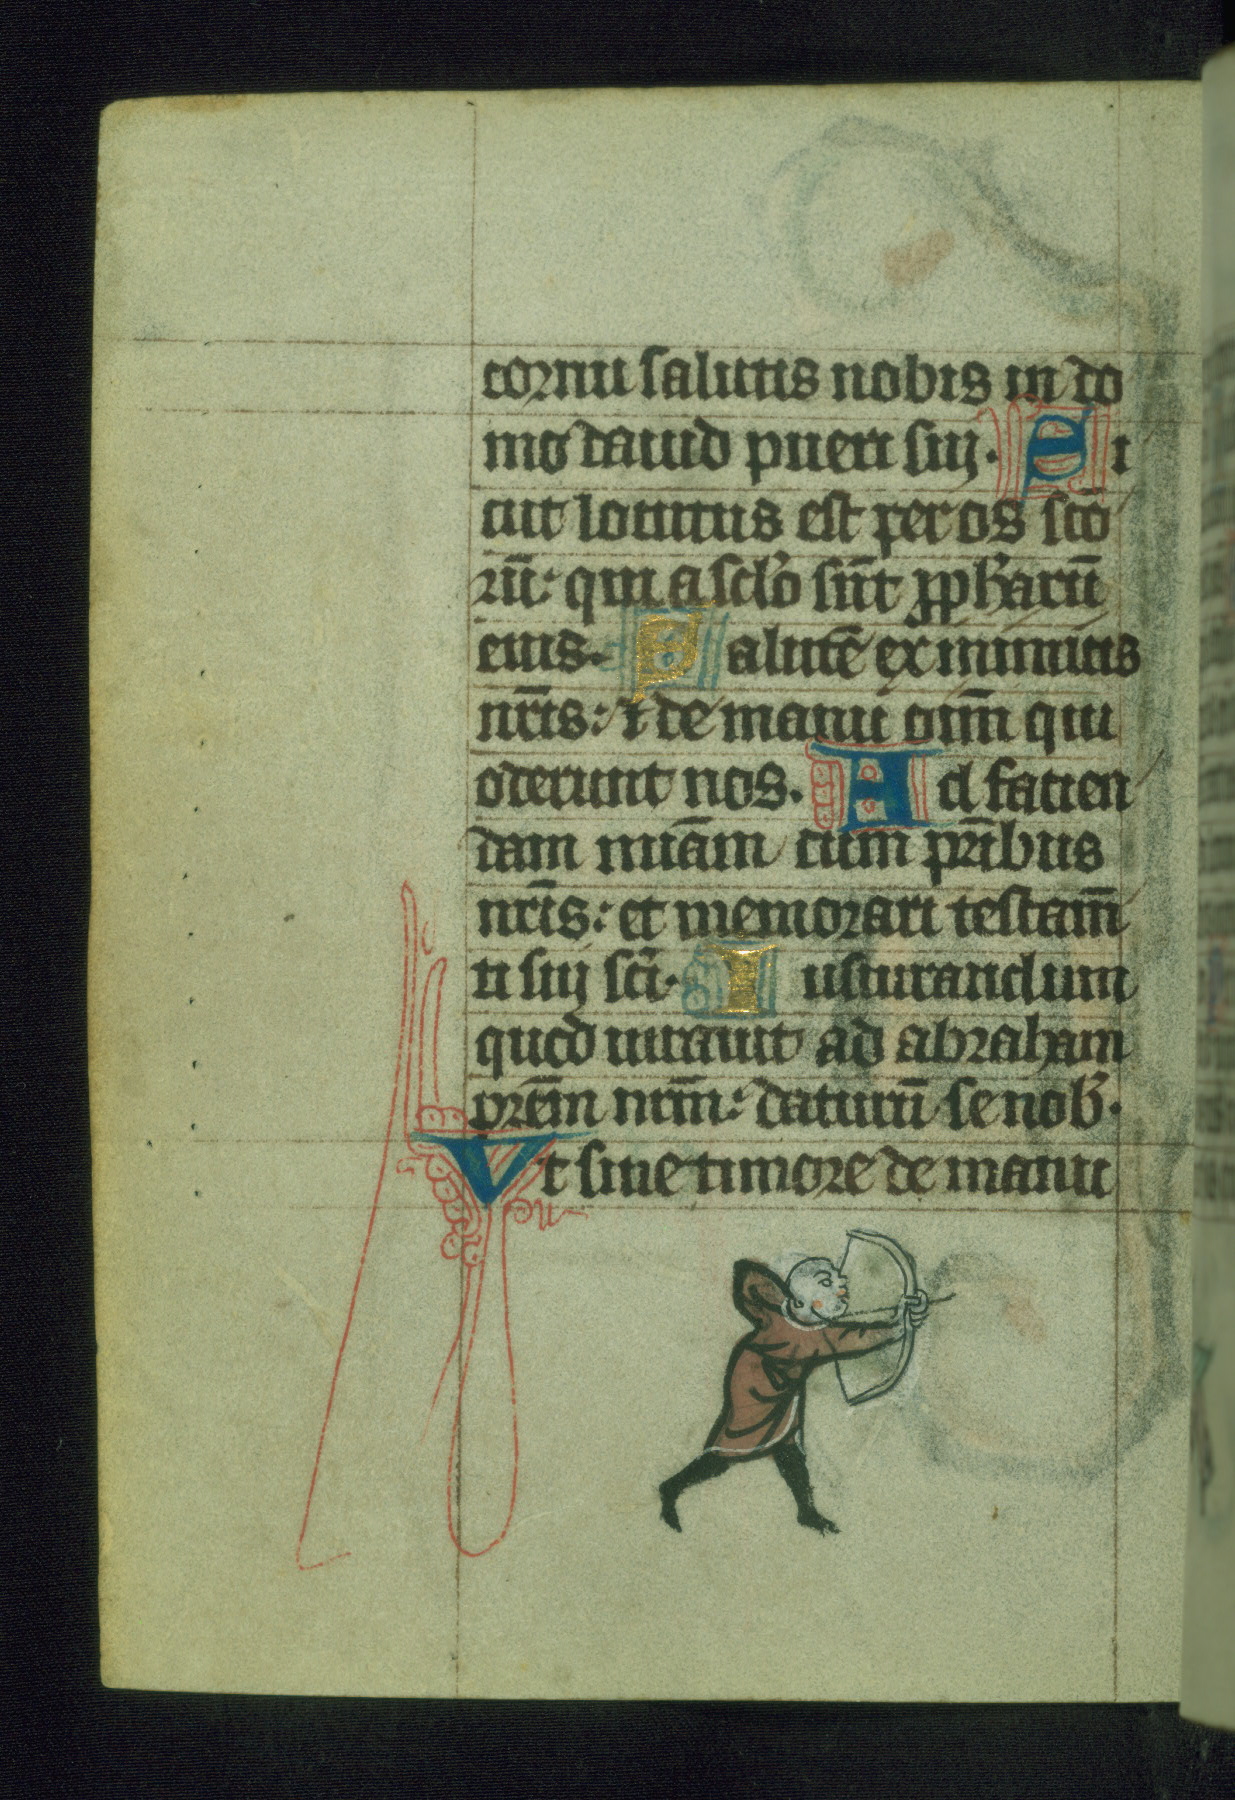 cornu salutis nobis in do
mo dauid pueri sui. Si
cut locutus est per os sc̄o
rū: qui a sc̄lo sūt ꝓph̄arū
eius. Salutē ex inimicis
nr̄is: ⁊ de manu om̄ qui
oderunt nos. Ad facien
dam mi͞am cum pr̄ibus
nr̄is: et memorari testam̄
ti sui sc̄i. Iusiurandum
quod iurauit ad abraham
pr̄em nr̄m: daturū se nob̄.
Vt sine timore de manu